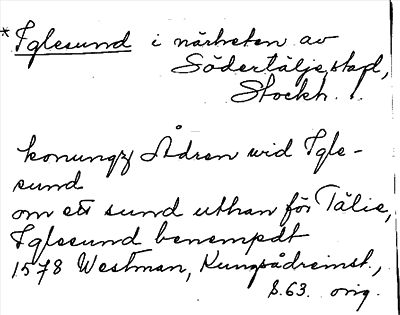 *Iglesund i närheten av
Södertälje stad,
Stockh. l.
konungz Ådren wid Igle-
sund
om ett sund uthan för Tälie,
Iglesund benempdt
1578 Westman, Kungsådreinst.,
s. 63. orig.